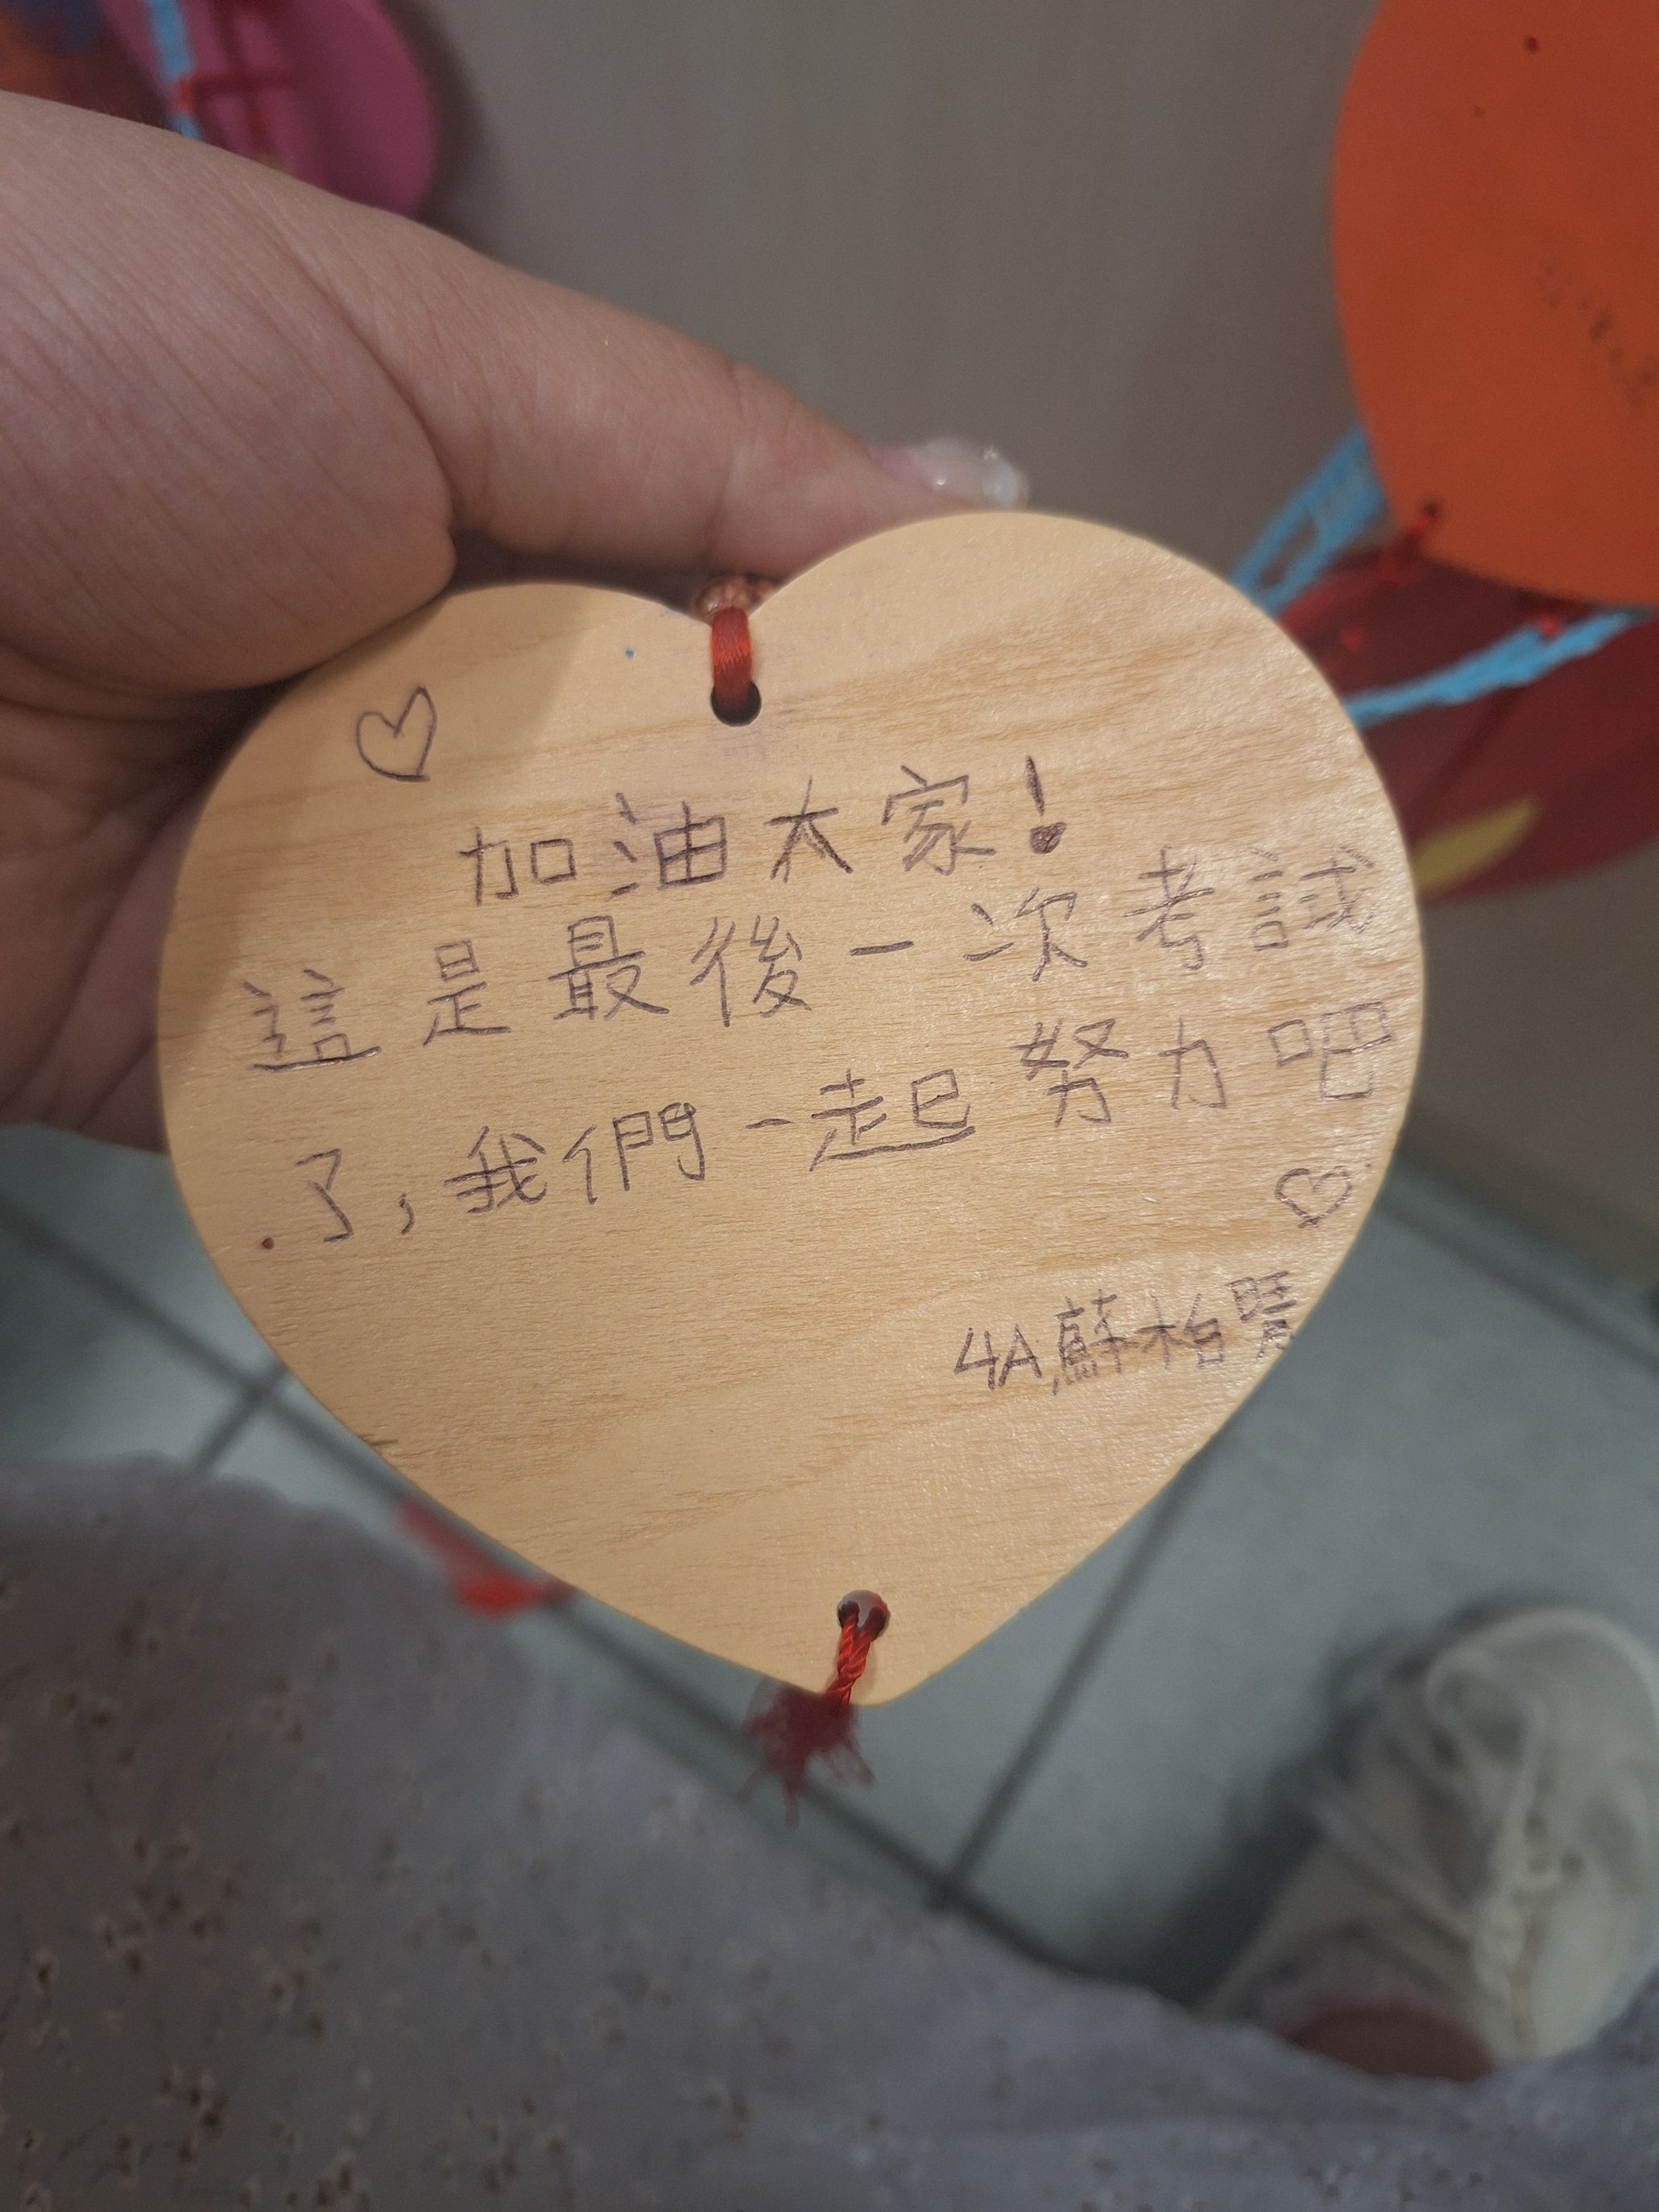 加油大家!
這是最後一次考試
了,我們一起努力吧
4A蘇柏晴